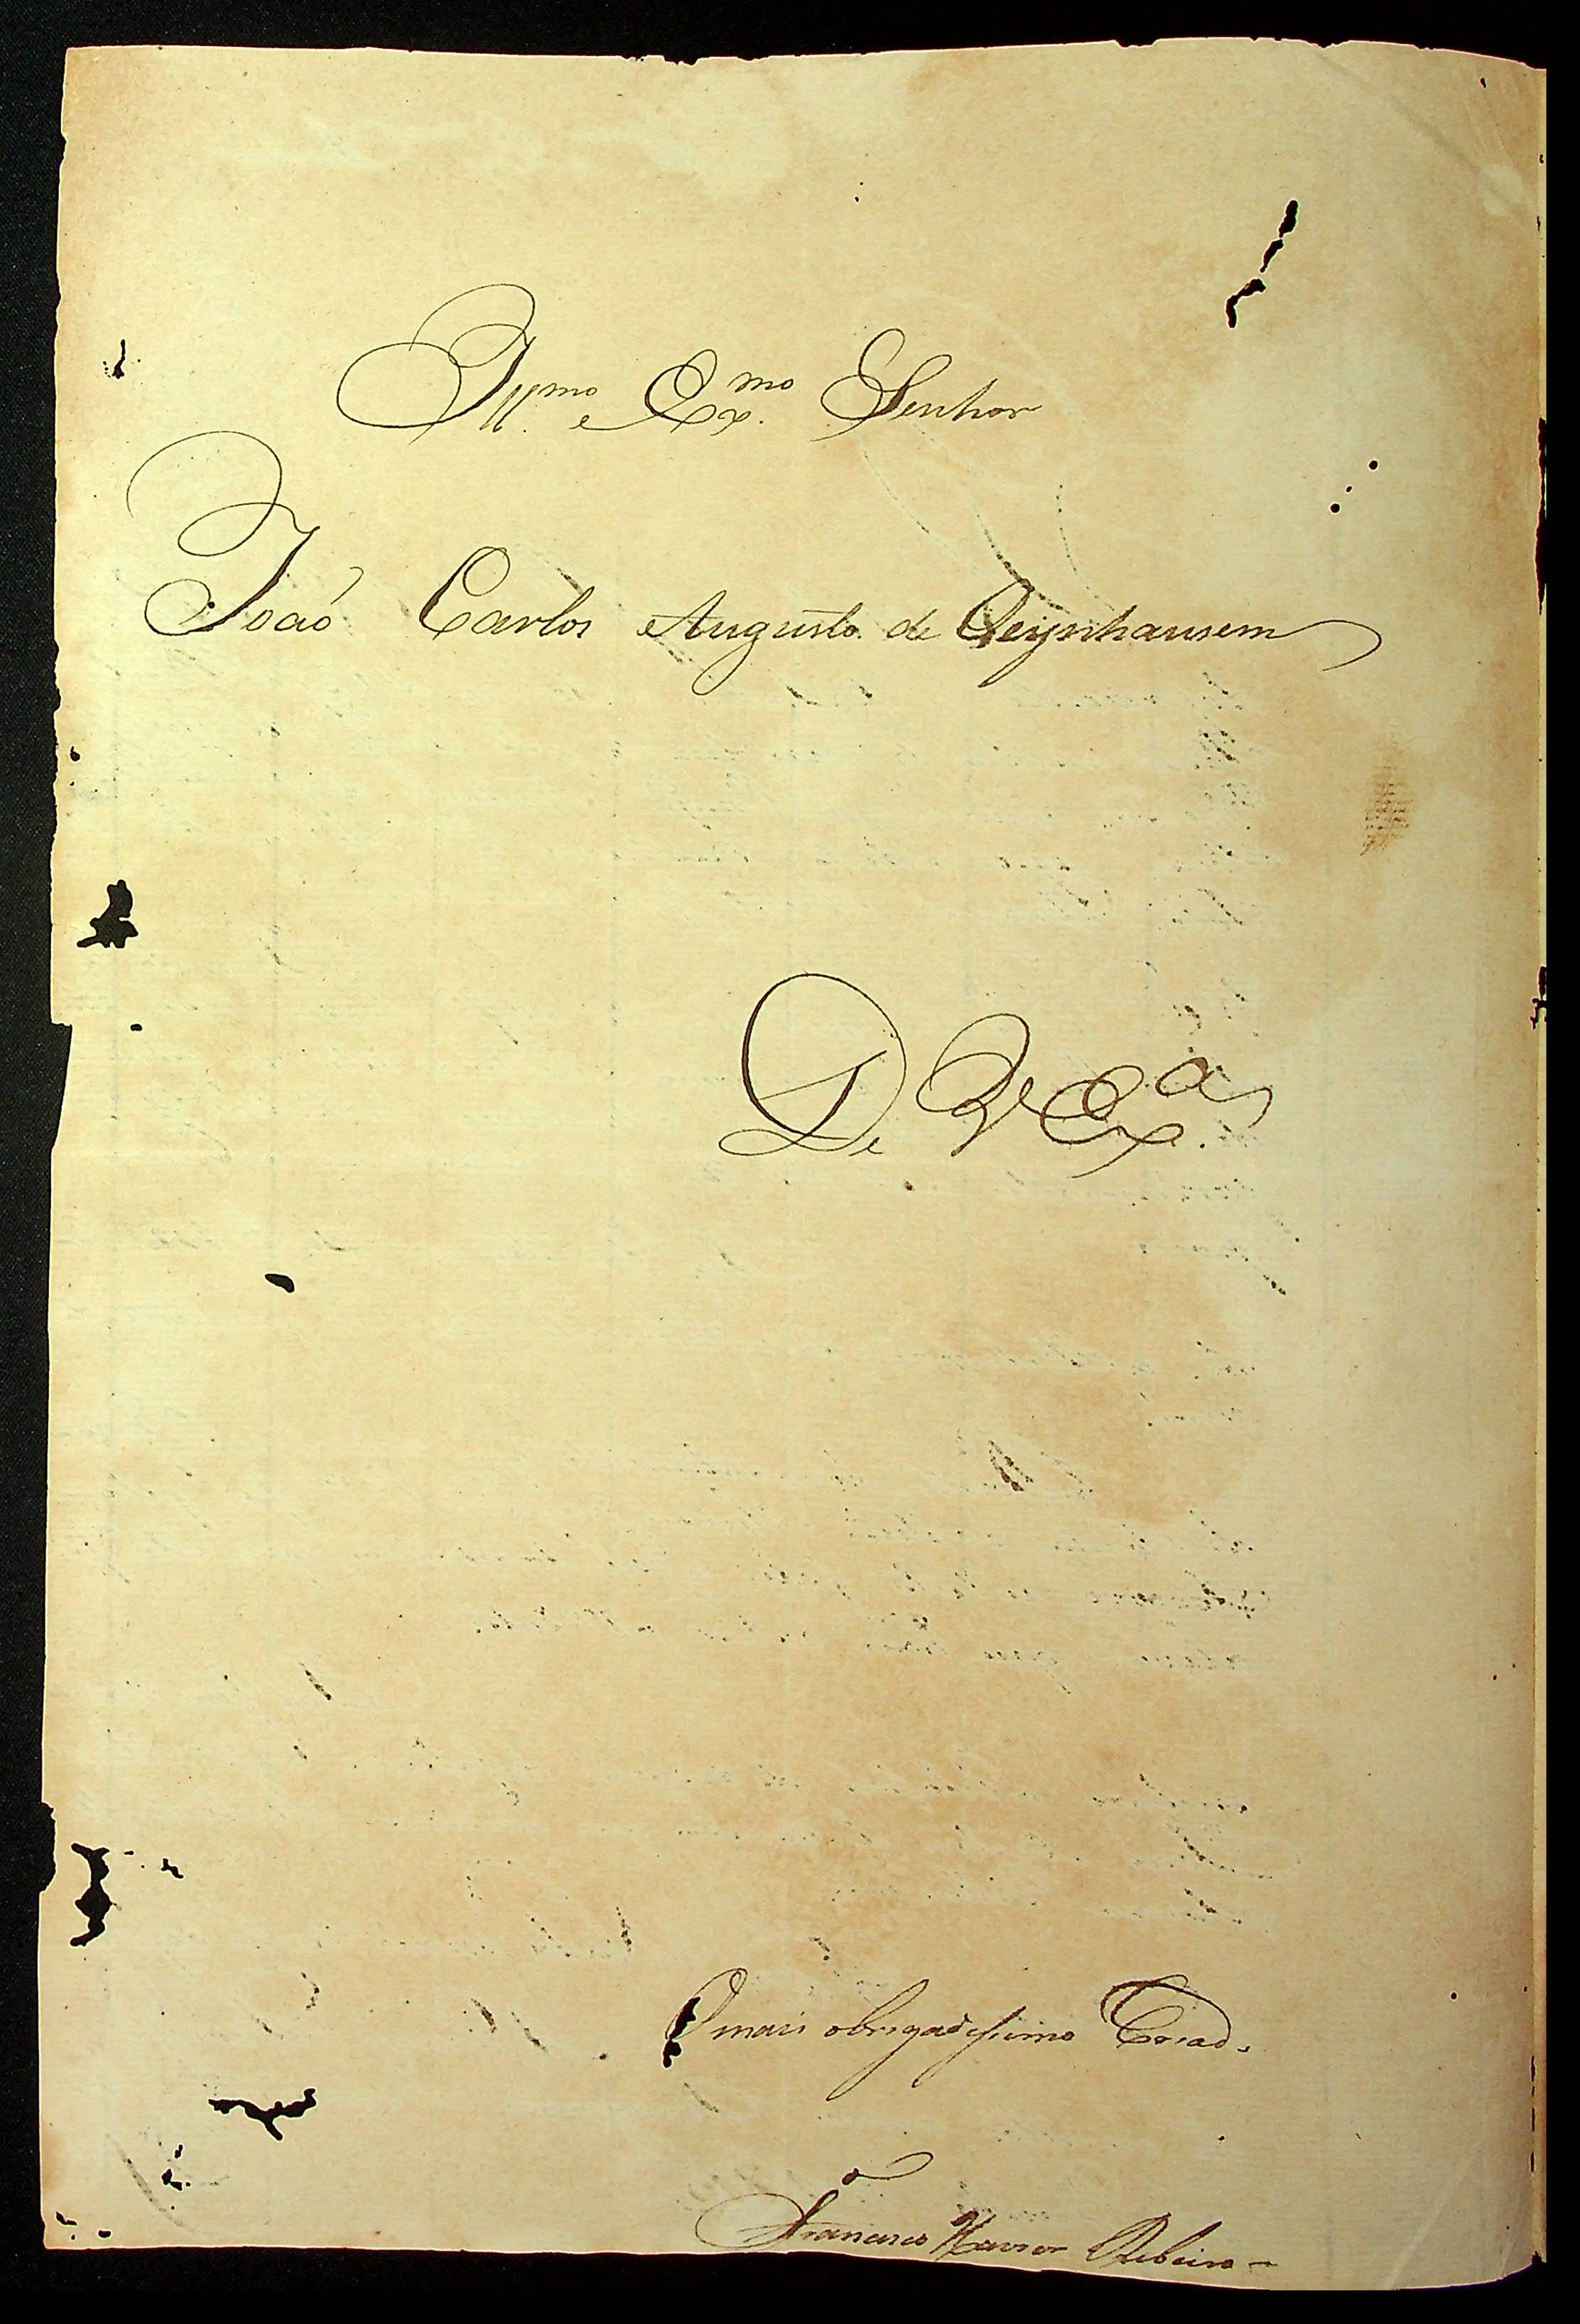 Ill.mo e Ex.mo Senhor
Joaó Carlos Augusto de Oeÿnhausem
De V Ex.a
O mais obrigadissimo Criado
Francisco Xavier Ribeiro